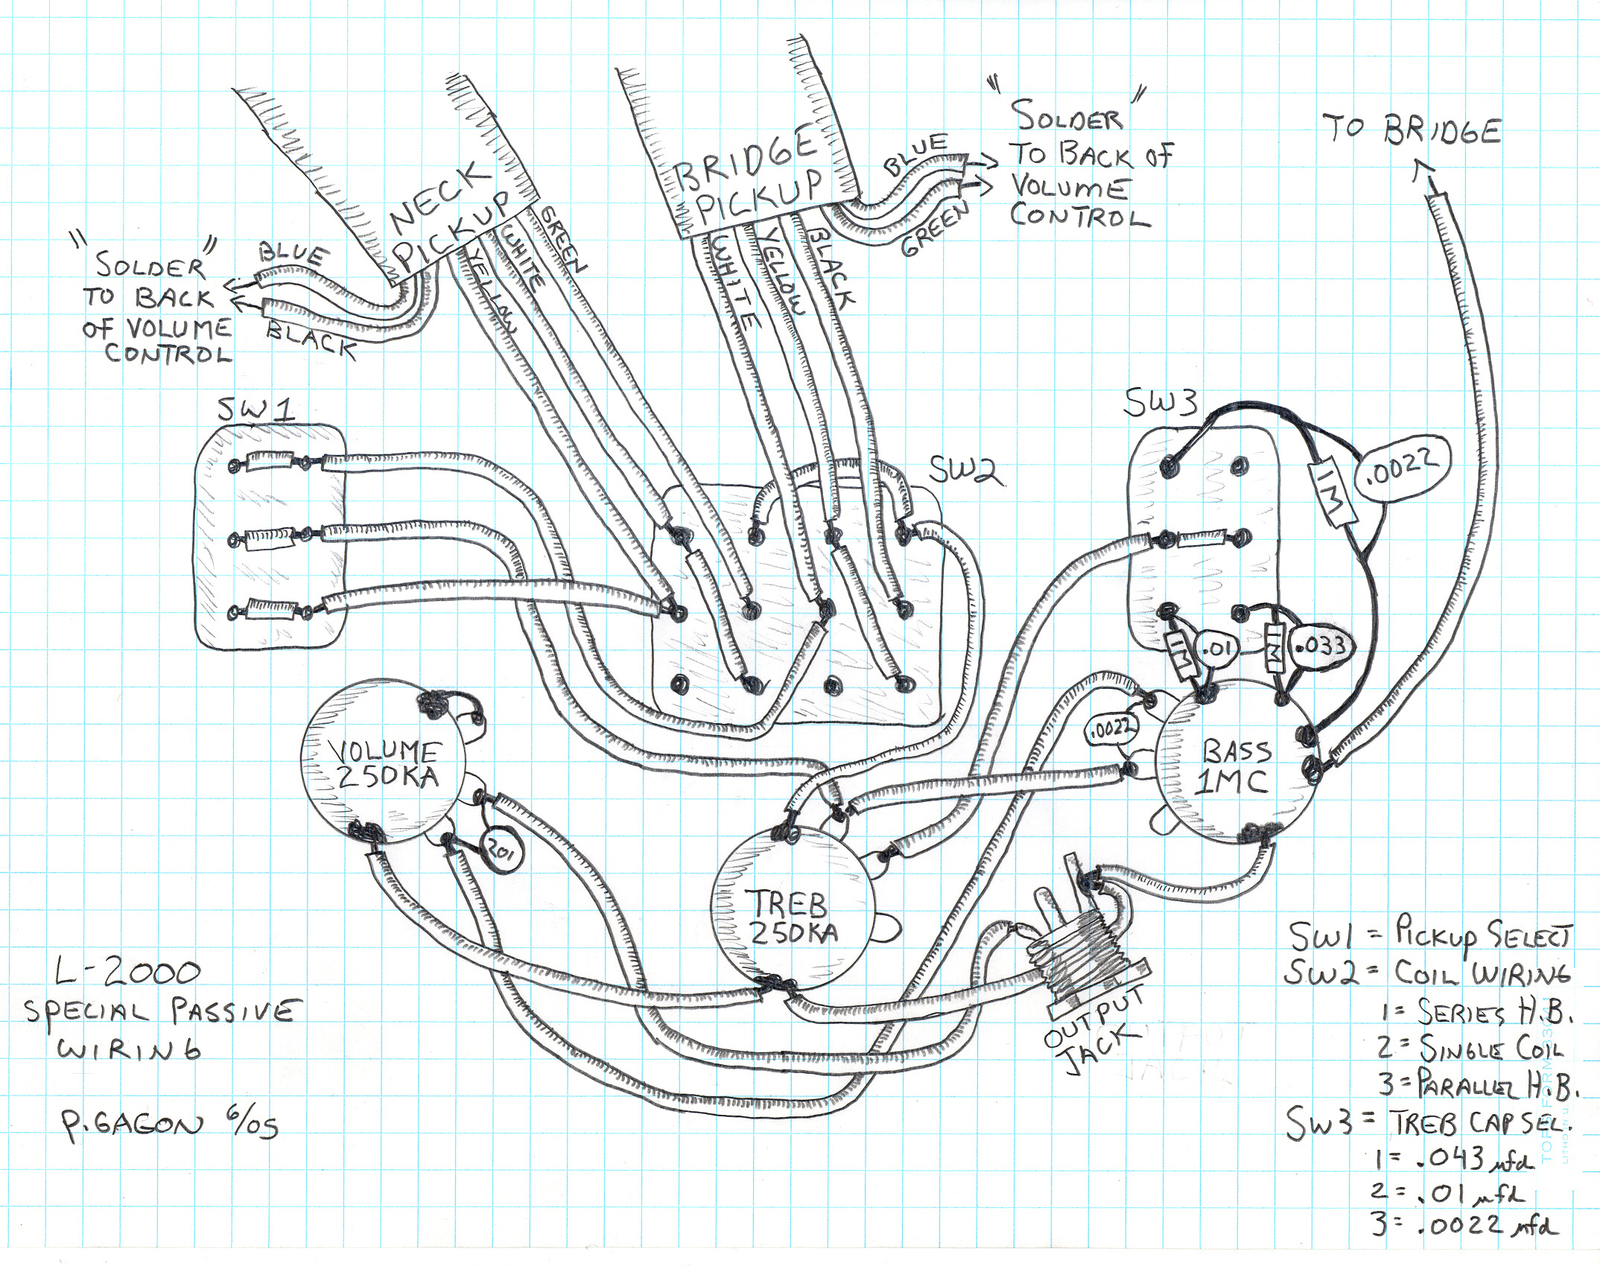 "SOLDER"
TO BACK OF
VOLUME
CONTROL
TO BRIDGE
BRIDGE
PICKUP
BLUE
GREEN
NECK
PICKUP
GREEN
WHITE
YELLOW
WHITE
YELLOW
BLACK
"SOLDER"
TO BACK
OF VOLUME
CONTROL
BLUE
BLACK
SW1
SW2
SW3
.0022
1M
1M
.01
1M
.033
VOLUME
250KA
.0022
BASS
1MC
201
TREB
250KA
OUTPUT
JACK
L-2000
SPECIAL PASSIVE
WIRING
P.GAGON 6/05
SW1 = PICKUP SELECT
SW2 = COIL WIRING
1 = SERIES H.B.
2 = SINGLE COIL
3 = PARALLEL H.B.
SW3 = TREB CAP SEL.
1 = .043 mfd
2 = .01 mfd
3 = .0022 mfd